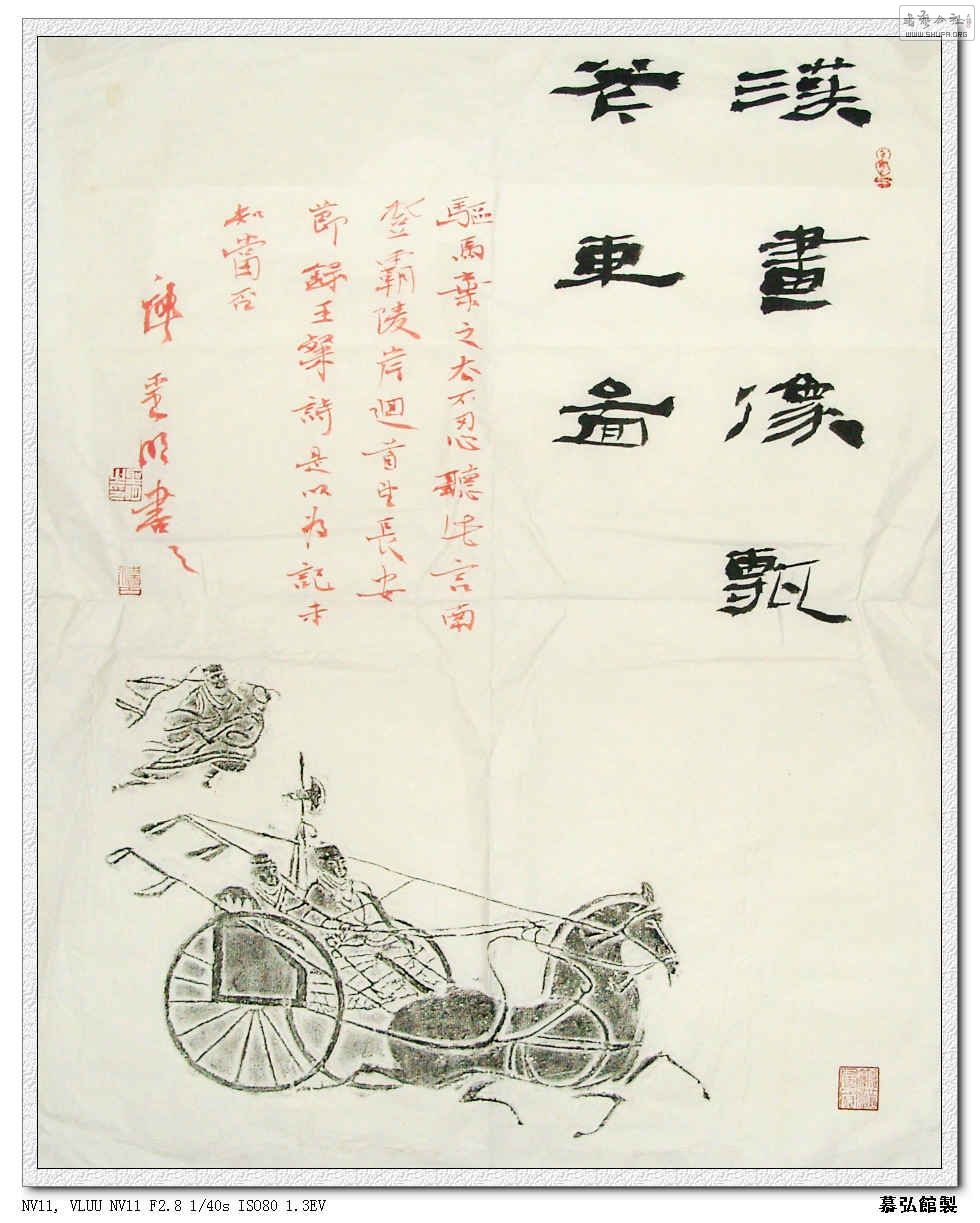 書藝公社
WWW.SHUFA.ORG
漢畫像甎
斧車圖
驅馬棄之去不忍聽此言南
登霸陵岸迴首望長安
節錄王粲詩是以為記未
知當否
明書之
NV11, VLUU NV11 F2.8 1/40s ISO80 1.3EV
慕弘館製